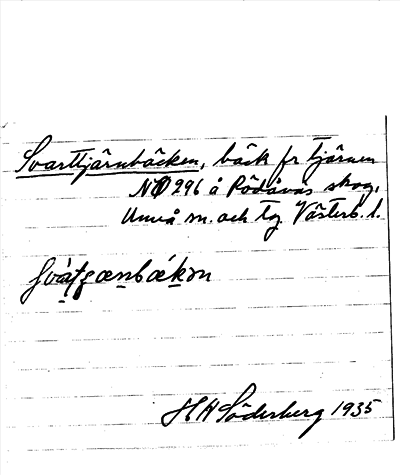 Svarttjärnbäcken, bäck fr tjärnen
NO 296 å Rödåvas skog,
Umeå m. och tg. Västerb. l.
H H Söderberg 1935